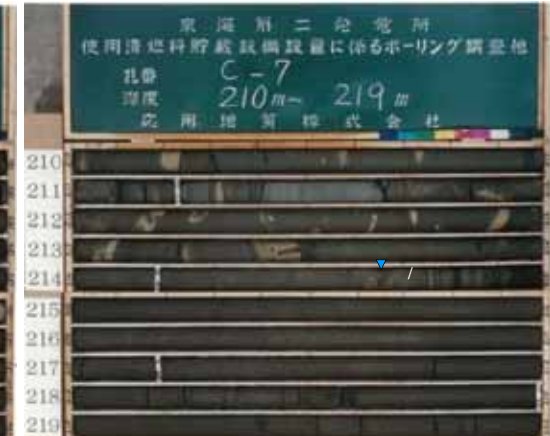 東海第二発電所
使用済燃料貯蔵設備設置に係るボーリング調査他
孔番 C-7
深度 210m~ 219m
応用地質株式会社
210
211
212
213
214
215
216
217
218
219